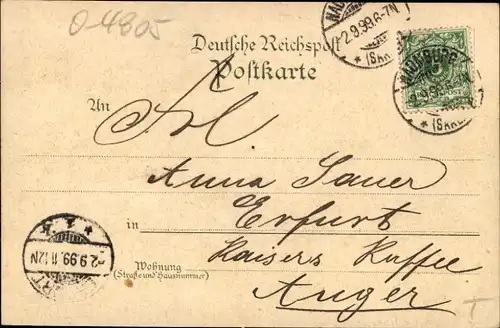 O-4805
Deutsche Reichspost
Postkarte
NAUMBURG
2.9.99.6-7N
* (SAALE)
NAUMBURG
2.9.99.6-7N
* (SAALE)
5
An
Frl.
Anna Sauer
in Erfurt
Kaisers Kaffee
Wohnung
(Straße und Hausnummer)
Anger
* 1.k
2.9.99.11-12N
T